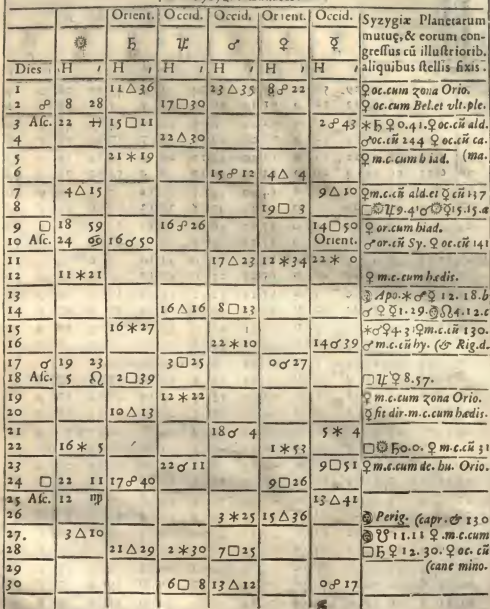 Orient. Occid. Occid. Orient. Occid. Syzygiæ Planetarum
☉ ♄ ♃ ♂ ♀ ☿ mutuę, & eorum con-
gressus cū illustriorib.
Dies H ' H ' H ' H ' H ' H ' aliquibus stellis fixis.
1 11△36 23△35 8☍22 ♀oc.cum zona Orio.
2 ☍ 8 28 17□30 ♀oc.cum Bel.et vlt.ple.
3 Asc. 22 15□11 2☍43 ✶♄♀0.41.♀oc.cū ald.
4 22△30 ♂oc.cū 244 ♀oc.cū ca.
5 21✶19 ♀m.c.cum hiad. (ma.
6 15☍12 4△
7 4△15 9△10 ♀m.c.cū ald.et ☿cū 137
8 19□3
9 □ 18 59 16☍26 14□50 ♀or.cum hiad.
10 Asc. 24 ♋ 16☌50 Orient. ♂or.cū Sy. ♀oc.cū 141
11 17△23 12✶34 22✶0
12 11✶21 ♀m.c.cum hædis.
13 Apo.✶♂♀ 12.18.
14 16△16 8□13
15 16✶27 ✶♂♀4.3.♀m.c.cū 130.
16 22✶10 14☌39 ♂m.c.cū hy. (& Rig.d.
17 ☌ 19 23 3□25 0☌27
18 Asc. 5 ♌ 2□39 □♃♀8.57.
19 12✶22 ♀m.c.cum zona Orio.
20 10△13 ♀fit dir.m.c.cum hædis.
21 18☌4 5✶4
22 16✶5 1✶53 □☉♄0.0.♀m.c.cū 31
23 22☌11 9□51 ♀m.c.cum de.hu.Orio.
24 □ 22 11 17☍40 9□26
25 Asc. 12 ♍ 13△41
26 3✶25 15△36 Perig. (capr.& 130
27. 3△10 ☋ 11.11 ♀.m.c.cum
28 21△29 2✶30 7□25 □♄♀12.30.♀oc.cū
29 (cane mino.
30 6□8 13△12 0☍17